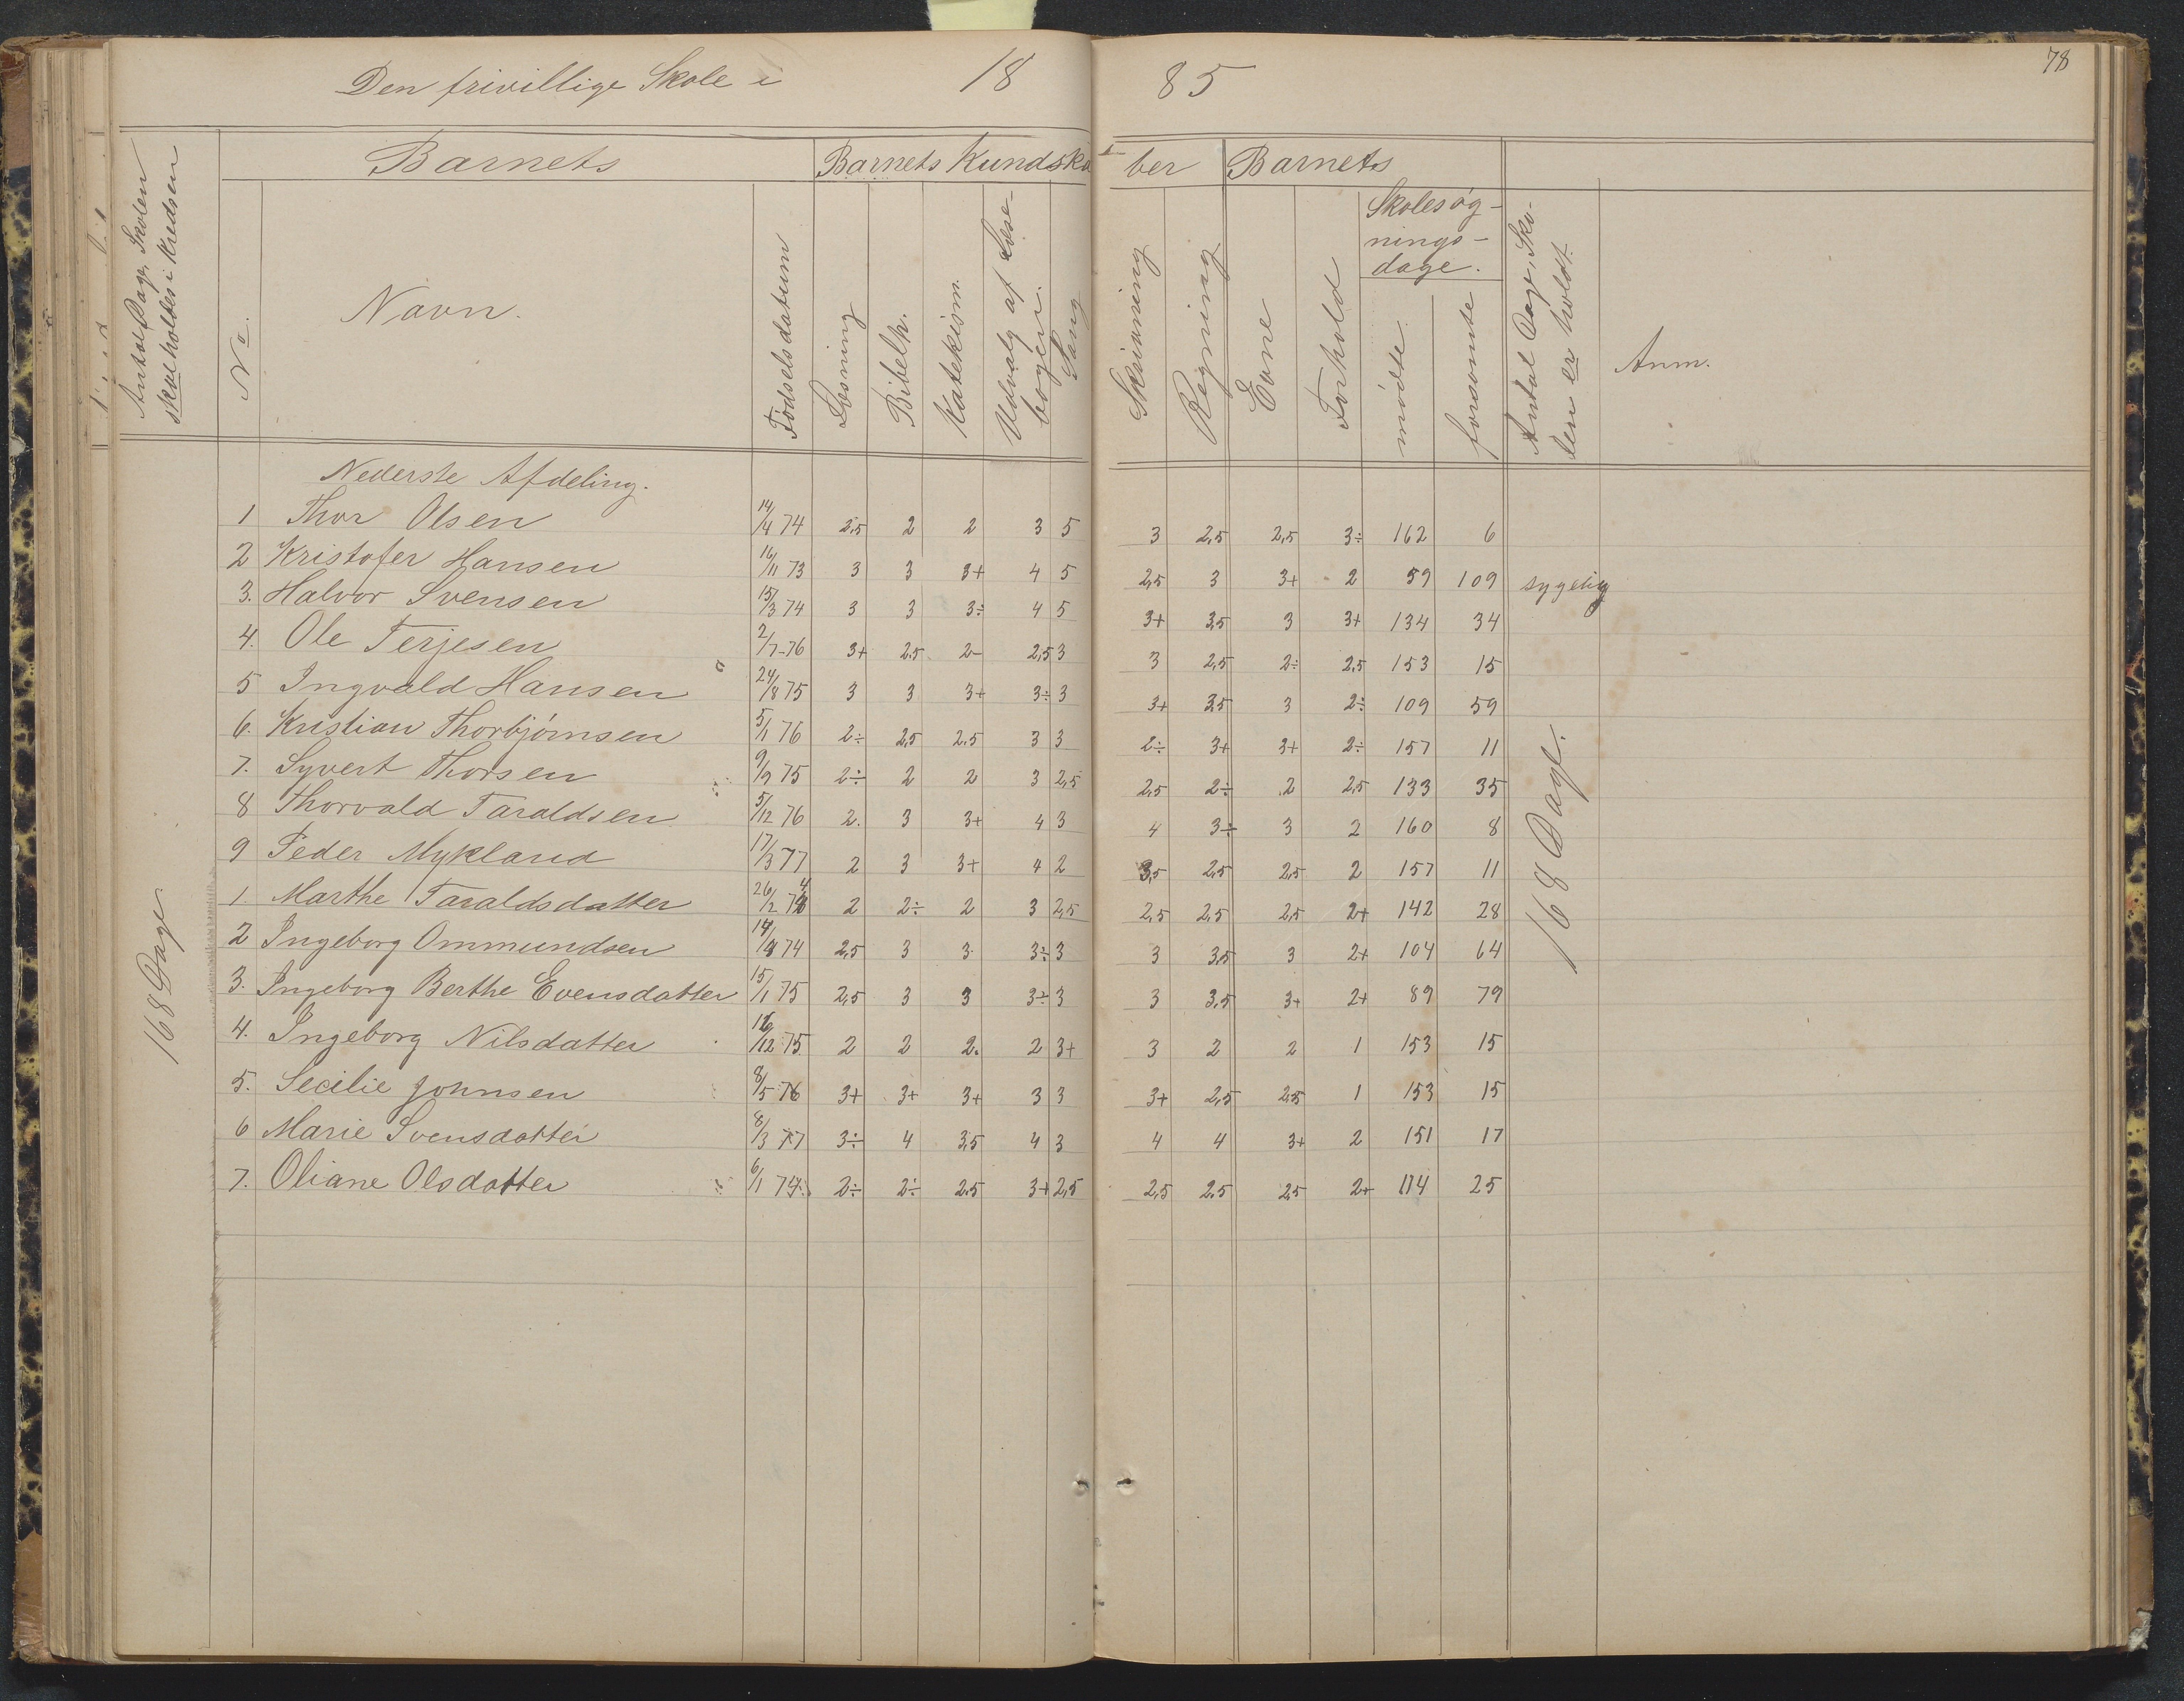 Den frivillige Skole i 1885
78
Antal Dage, Skolen skal holdes i Kredsen
Barnets
Barnets Kundskaber
Barnets
No.
Navn.
Fødselsdatum
Læsning
Bibelh.
Katekism.
Udvalg af Læsebogen.
Sang
Skrivning
Regning
Evne
Forhold
Skolesøgningsdage.
mødte
forsømte
Antal Dage, Skolen er holdt.
Anm.
Nederste Afdeling.
1 Thor Olsen 14/4 74 2,5 2 2 3 5 3 2,5 2,5 3÷ 162 6
2 Kristofer Hansen 16/11 73 3 3 3+ 4 5 2,5 3 3+ 2 59 109 sygelig
3. Halvor Svensen 15/3 74 3 3 3÷ 4 5 3+ 3,5 3 3+ 134 34
4. Ole Terjesen 2/7-76 3+ 2,5 2- 2,5 3 3 2,5 2÷ 2,5 153 15
5 Ingvald Hansen 24/8 75 3 3 3+ 3÷ 3 3+ 3,5 3 2÷ 109 59
6. Kristian Thorbjørnsen 5/1 76 2÷ 2,5 2,5 3 3 2÷ 3+ 3+ 2÷ 157 11
7. Syvert Thorsen 9/9 75 2÷ 2 2 3 2,5 2,5 2÷ 2 2,5 133 35
8 Thorvald Taraldsen 5/12 76 2. 3 3+ 4 3 4 3÷ 3 2 160 8
9 Peder Mykland 17/3 77 2 3 3+ 4 2 3,5 2,5 2,5 2 157 11
1. Marthe Taraldsdatter 26/2 74 2 2÷ 2 3 2,5 2,5 2,5 2,5 2+ 142 28
2 Ingeborg Ommundsen 14/9 74 2,5 3 3 3÷ 3 3 3,5 3 2+ 104 64
3. Ingeborg Berthe Evensdatter 15/1 75 2,5 3 3 3÷ 3 3 3,5 3+ 2+ 89 79
4. Ingeborg Nilsdatter 16/12 75 2 2 2. 2 3+ 3 2 2 1 153 15
5. Secilie Johnsen 8/5 76 3+ 3+ 3+ 3 3 3+ 2,5 2,5 1 153 15
6 Marie Svensdatter 8/3 77 3÷ 4 3,5 4 3 4 4 3+ 2 151 17
7. Oliane Olsdatter 6/1 74. 2÷ 2÷ 2,5 3+ 2,5 2,5 2,5 2,5 2+ 114 25
168 Dage
168 Dage.